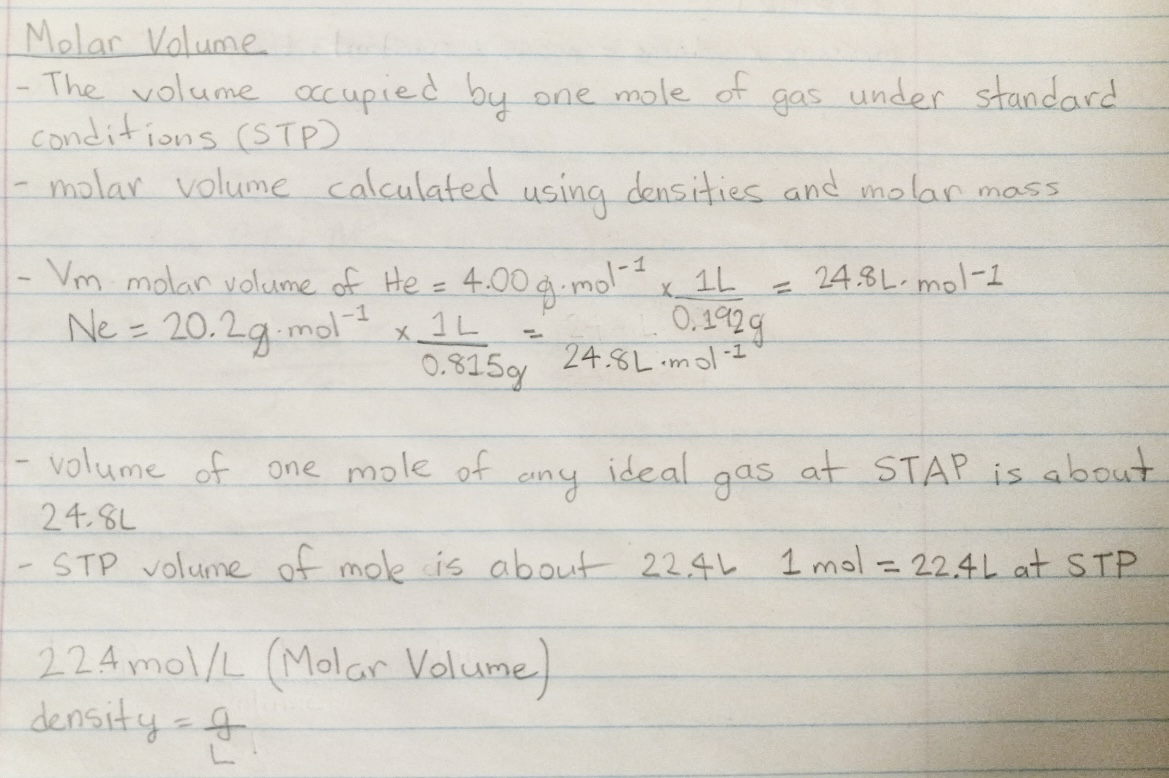 Molar Volume
- The volume occupied by one mole of gas under standard
conditions (STP)
- molar volume calculated using densities and molar mass
- Vm molar volume of He = 4.00 g·mol⁻¹ x 1L/0.192g = 24.8L·mol-1
Ne = 20.2g·mol⁻¹ x 1L/0.815g = 24.8L·mol⁻¹
- volume of one mole of any ideal gas at STAP is about
24.8L
- STP volume of mole is about 22.4L 1 mol = 22.4L at STP
22.4mol/L (Molar Volume)
density = g/L